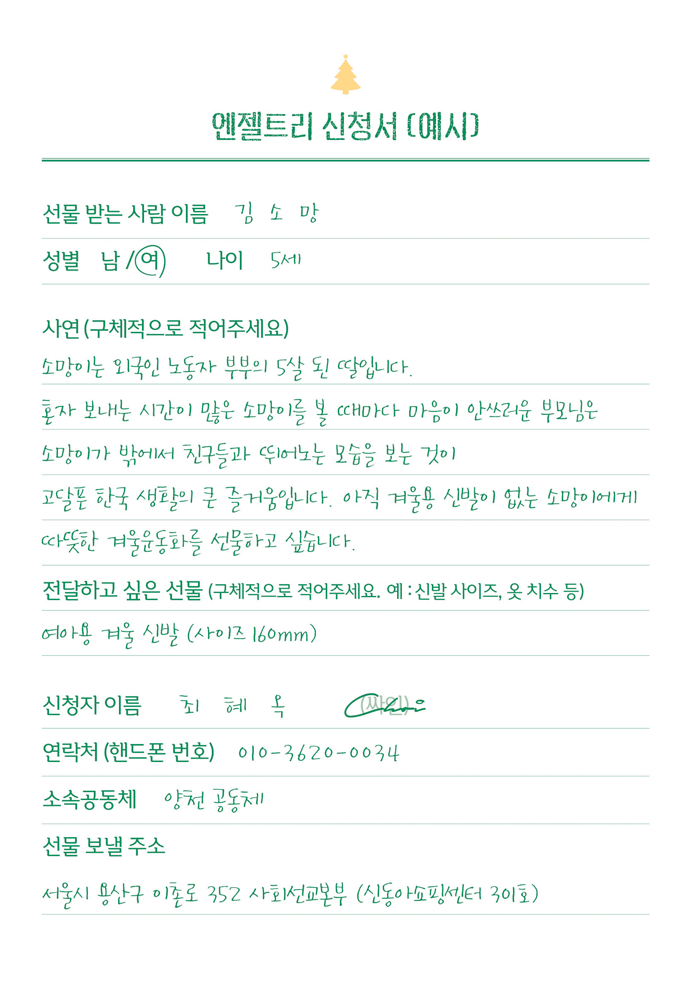 엔젤트리 신청서 (예시)
선물 받는 사람 이름 김 소 망
성별 남 / 여 나이 5세
사연 (구체적으로 적어주세요)
소망이는 외국인 노동자 부부의 5살 된 딸입니다.
혼자 보내는 시간이 많은 소망이를 볼 때마다 마음이 안쓰러운 부모님은
소망이가 밖에서 친구들과 뛰어노는 모습을 보는 것이
고달픈 한국 생활의 큰 즐거움입니다. 아직 겨울용 신발이 없는 소망이에게
따뜻한 겨울운동화를 선물하고 싶습니다.
전달하고 싶은 선물 (구체적으로 적어주세요. 예 : 신발 사이즈, 옷 치수 등)
여아용 겨울 신발 (사이즈 160mm)
신청자 이름 최 혜 옥 (싸인) Choi
연락처 (핸드폰 번호) 010-3620-0034
소속공동체 양천 공동체
선물 보낼 주소
서울시 용산구 이촌로 352 사회선교본부 (신동아쇼핑센터 301호)